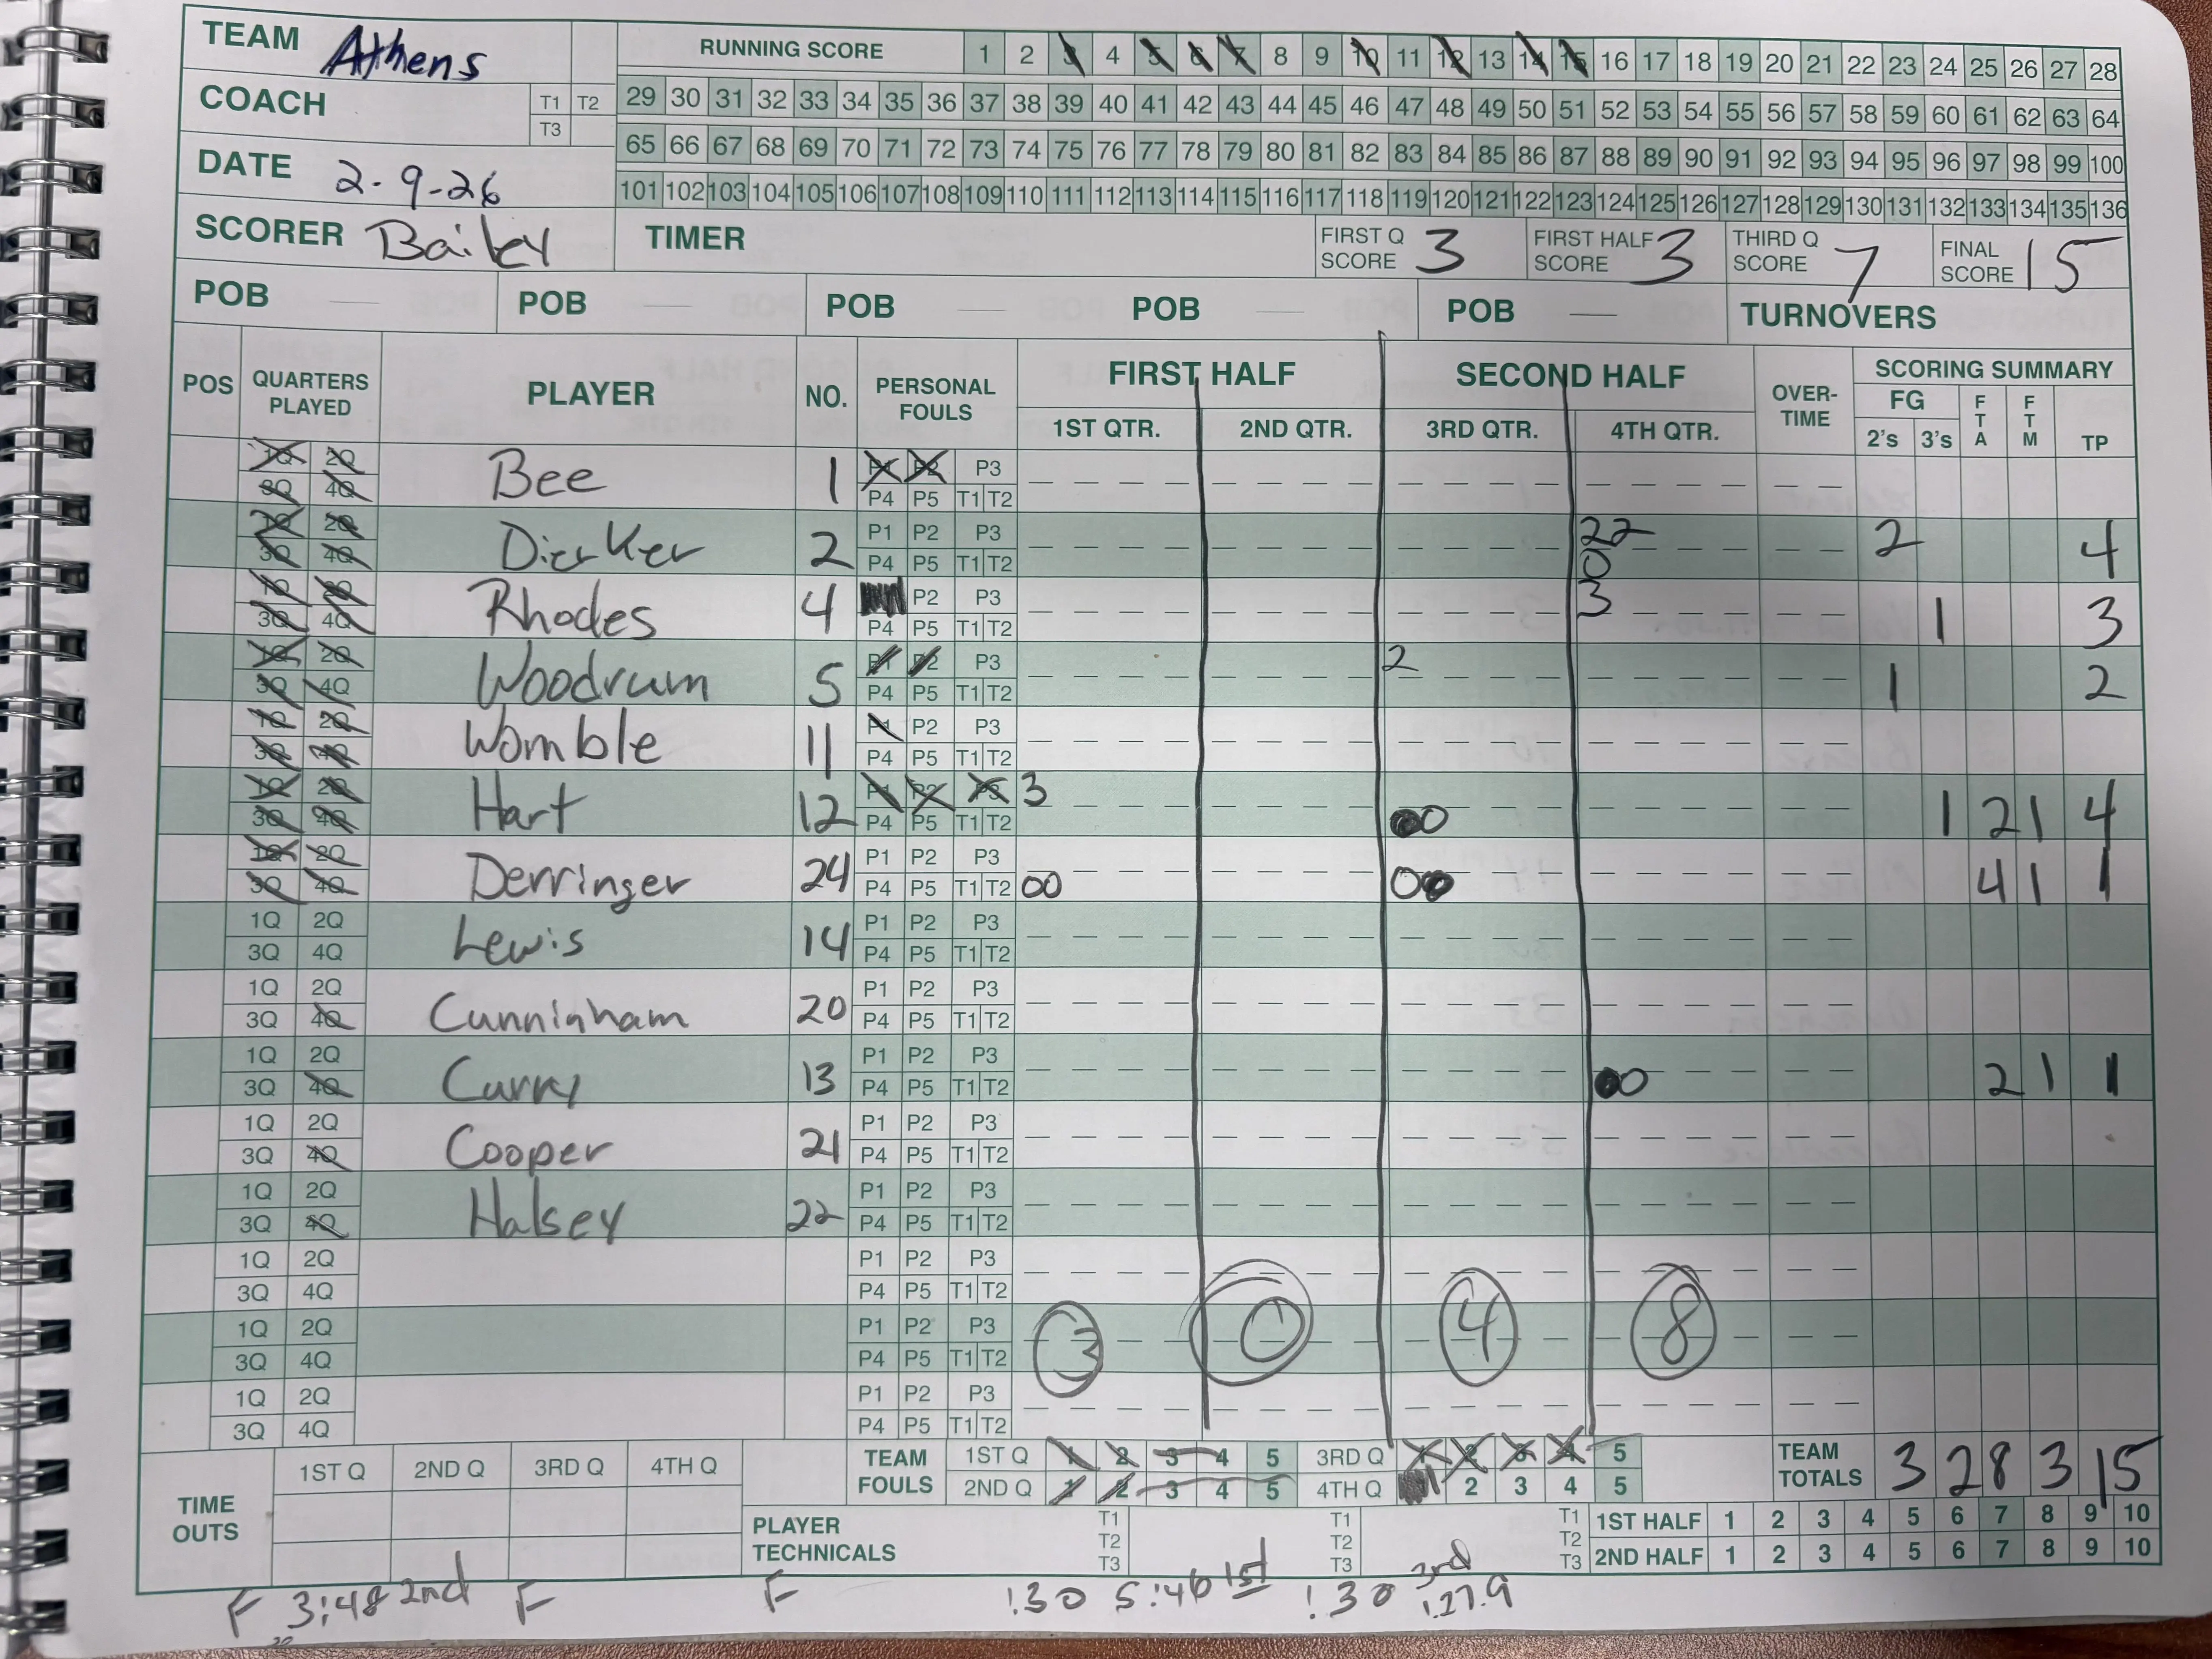 TEAM Athens RUNNING SCORE 1 2 3 4 5 6 7 8 9 10 11 12 13 14 15 16 17 18 19 20 21 22 23 24 25 26 27 28
COACH T1 T2 T3 29 30 31 32 33 34 35 36 37 38 39 40 41 42 43 44 45 46 47 48 49 50 51 52 53 54 55 56 57 58 59 60 61 62 63 64
DATE 2-9-26 65 66 67 68 69 70 71 72 73 74 75 76 77 78 79 80 81 82 83 84 85 86 87 88 89 90 91 92 93 94 95 96 97 98 99 100
101 102 103 104 105 106 107 108 109 110 111 112 113 114 115 116 117 118 119 120 121 122 123 124 125 126 127 128 129 130 131 132 133 134 135 136
SCORER Bailey TIMER FIRST Q SCORE 3 FIRST HALF SCORE 3 THIRD Q SCORE 7 FINAL SCORE 15
POB POB POB POB POB TURNOVERS
POS QUARTERS PLAYED PLAYER NO. PERSONAL FOULS FIRST HALF SECOND HALF OVER-TIME SCORING SUMMARY
1ST QTR. 2ND QTR. 3RD QTR. 4TH QTR. FG 2's 3's FTA FTM TP
1Q 2Q Bee 1 P1 P2 P3
3Q 4Q P4 P5 T1 T2
1Q 2Q Dierker 2 P1 P2 P3 22 2 4
3Q 4Q P4 P5 T1 T2 0
1Q 2Q Rhodes 4 P2 P3 3 1 3
3Q 4Q P4 P5 T1 T2
1Q 2Q Woodrum 5 P1 P2 P3 2 1 2
3Q 4Q P4 P5 T1 T2
1Q 2Q Womble 11 P1 P2 P3
3Q 4Q P4 P5 T1 T2
1Q 2Q Hart 12 P1 P2 P3 3 1 2 1 4
3Q 4Q P4 P5 T1 T2 00
1Q 2Q Derringer 24 P1 P2 P3 4 1 1
3Q 4Q P4 P5 T1 T2 00 00
1Q 2Q Lewis 14 P1 P2 P3
3Q 4Q P4 P5 T1 T2
1Q 2Q Cunninham 20 P1 P2 P3
3Q 4Q P4 P5 T1 T2
1Q 2Q Curry 13 P1 P2 P3 2 1 1
3Q 4Q P4 P5 T1 T2 00
1Q 2Q Cooper 21 P1 P2 P3
3Q 4Q P4 P5 T1 T2
1Q 2Q Halsey 22 P1 P2 P3
3Q 4Q P4 P5 T1 T2
1Q 2Q P1 P2 P3
3Q 4Q P4 P5 T1 T2
1Q 2Q P1 P2 P3 3 0 4 8
3Q 4Q P4 P5 T1 T2
1Q 2Q P1 P2 P3
3Q 4Q P4 P5 T1 T2
TIME OUTS 1ST Q 2ND Q 3RD Q 4TH Q TEAM FOULS 1ST Q 1 2 3 4 5 3RD Q 1 2 3 4 5 TEAM TOTALS 3 2 8 3 15
2ND Q 1 2 3 4 5 4TH Q 2 3 4 5
PLAYER TECHNICALS T1 T2 T3 T1 T2 T3 T1 T2 T3 1ST HALF 1 2 3 4 5 6 7 8 9 10
2ND HALF 1 2 3 4 5 6 7 8 9 10
F 3:48 2nd F F :30 5:46 1st :30 3rd :27.9